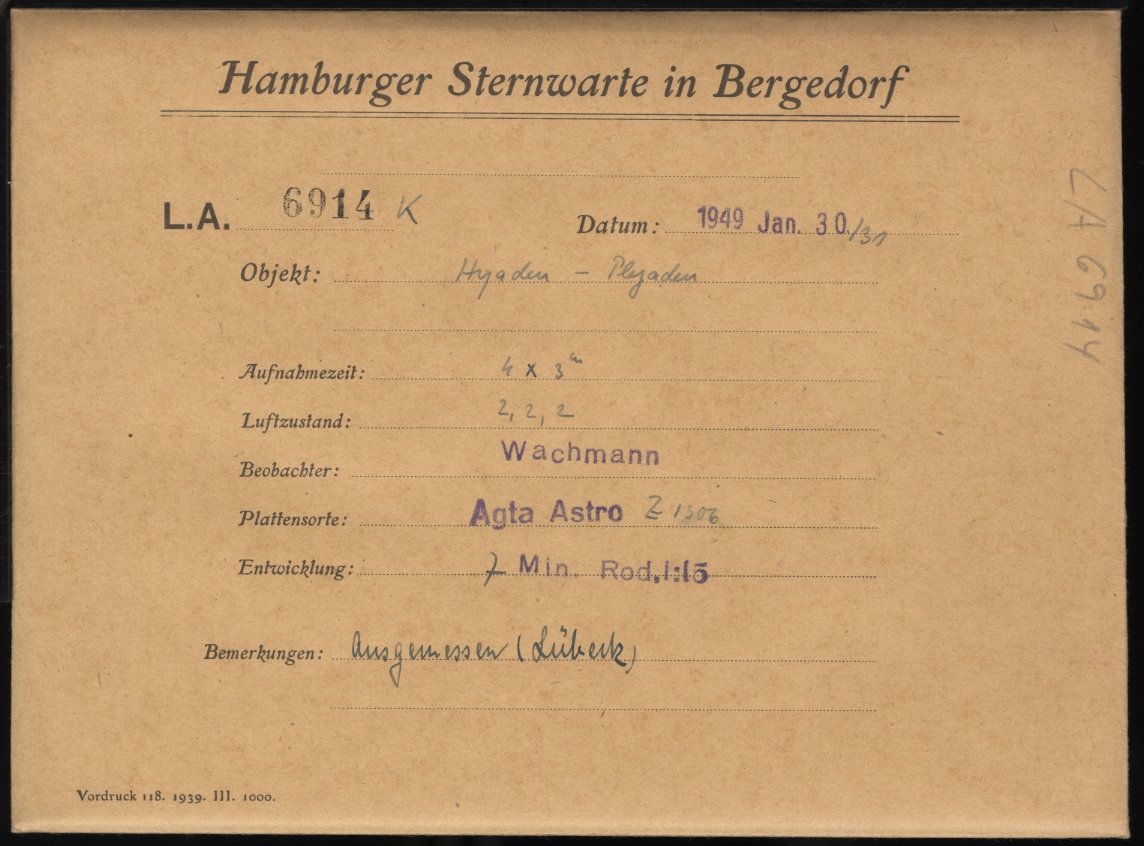 Hamburger Sternwarte in Bergedorf
L.A. 6914 K
Datum: 1949 Jan. 30./31
Objekt: Hyaden – Plejaden
Aufnahmezeit: 4 x 3ᵐ
Luftzustand: 2, 2, 2
Beobachter: Wachmann
Plattensorte: Agfa Astro Z 1306
Entwicklung: 7 Min. Rod. 1:15
Bemerkungen: Ausgemessen (Lübeck)
Vordruck 118. 1939. III. 1000.
LA 6914